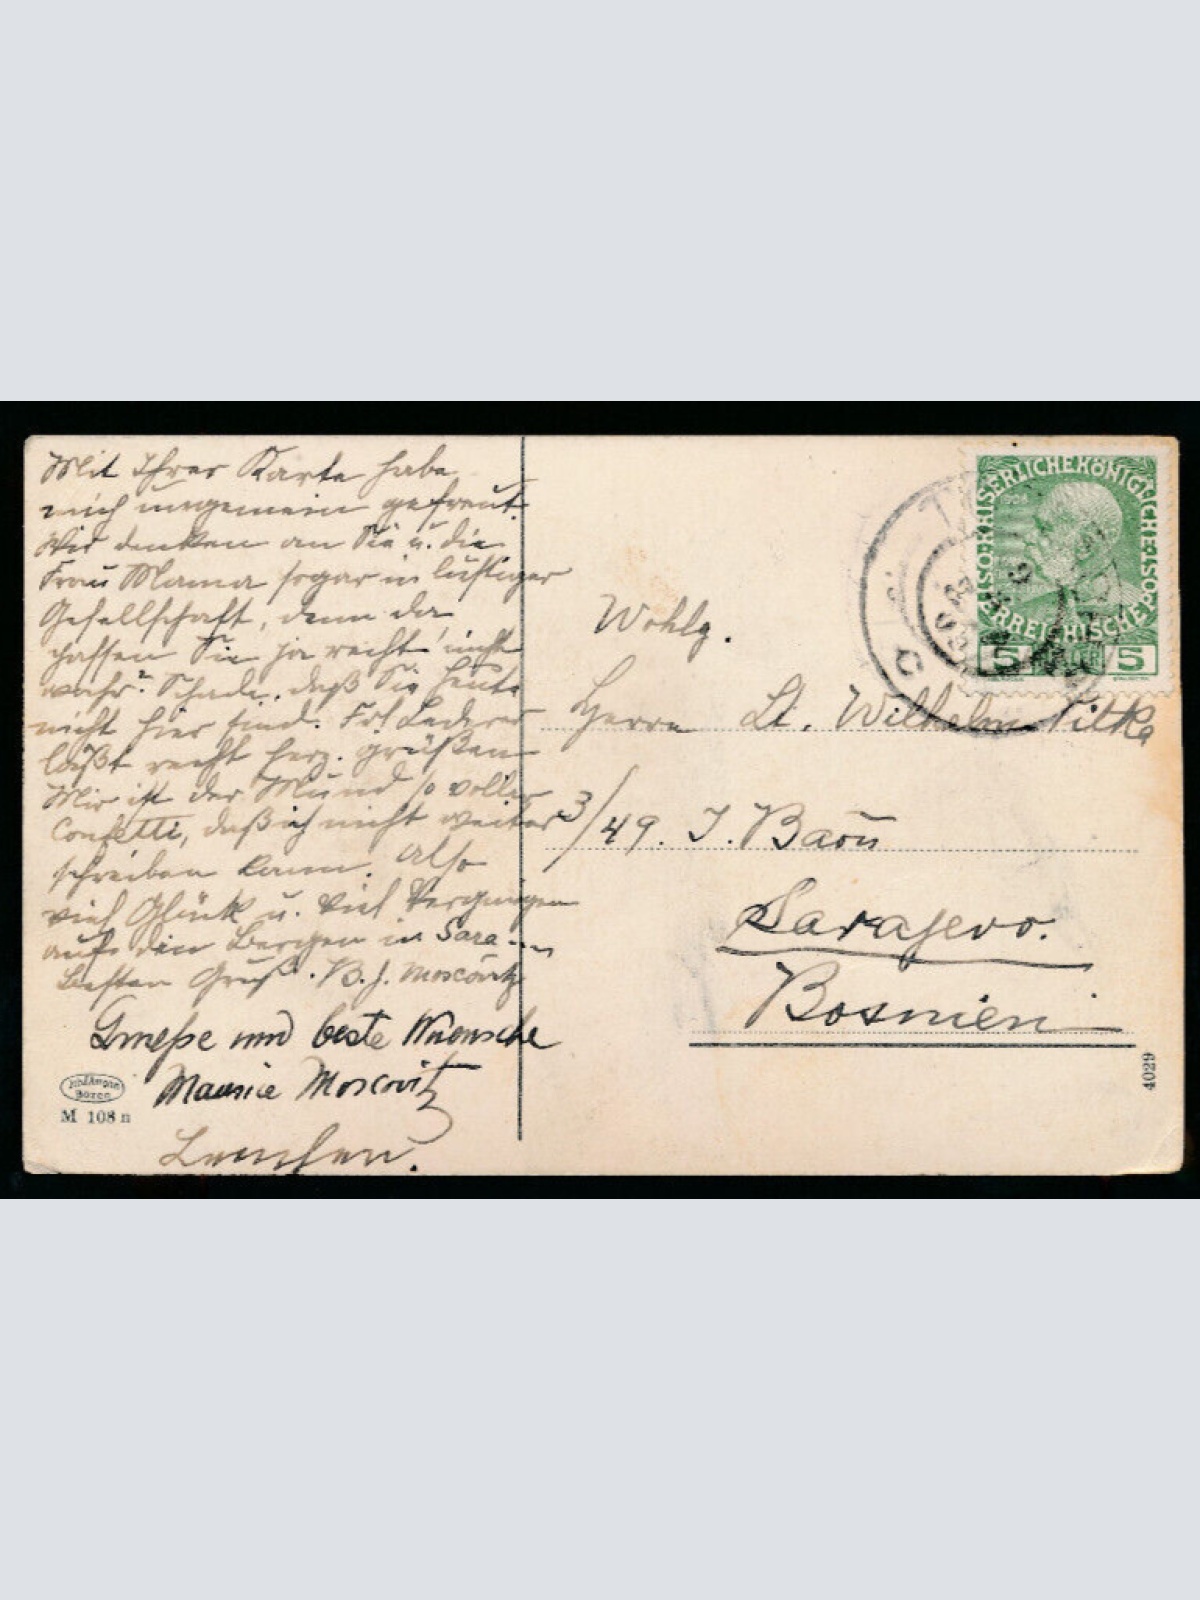 Mit Ihrer Karte habe
mich ungemein gefreut.
Wir denken an Sie u. die
Frau Mama sogar in lustiger
Gesellschaft, denn da
passen Sie ja recht, nicht
wahr? Schade, daß Sie heute
nicht hier sind. Frl Lederer
läßt recht herz. grüßen
Mir ist der Mund so voller
Confetti, daß ich nicht weiter
schreiben kann. Also
viel Glück u. viel Vergnügen
auf den Bergen in Sara
Besten Gruß. B. J. Moscovitz
Gruesse und beste Wuensche
Maurice Moscovitz
Lenchen.
Bozen
M 108 n
KAISERLICHE KÖNIGLICHE
ÖSTERREICHISCHE POST
5 5
Wohlg.
Herrn Lt. Wilhelm Pitka
3/49. I. Baon
Sarajevo.
Bosnien
4029